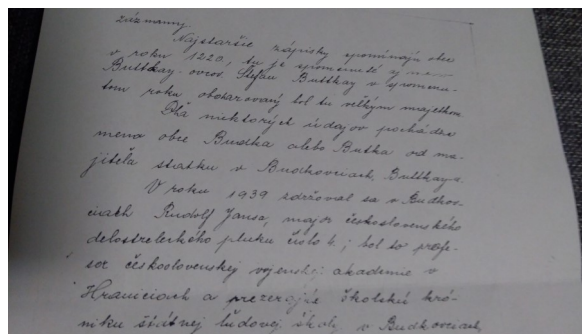 záznamy.
Najstaršie zápisky spomínajú obec
v roku 1220, tu je spomenuté aj meno
Buttkay-ovcov. Štefan Buttkay v spomenu-
tom roku obdarovaný bol tu veľkým majetkom
Dľa niektorých údajov pochádza
meno obce Budka alebo Butka od ma-
jiteľa statku v Budkovciach, Buttkay-a.
V roku 1939 zdržoval sa v Budkov-
ciach Rudolf Jansa, major československého
delostreleckého pluku číslo 4.; bol to profe-
sor československej vojenskej akademie v
Hraniciach a prezerajúc školskú kró-
niku štátnej ľudovej školy v Budkovciach,